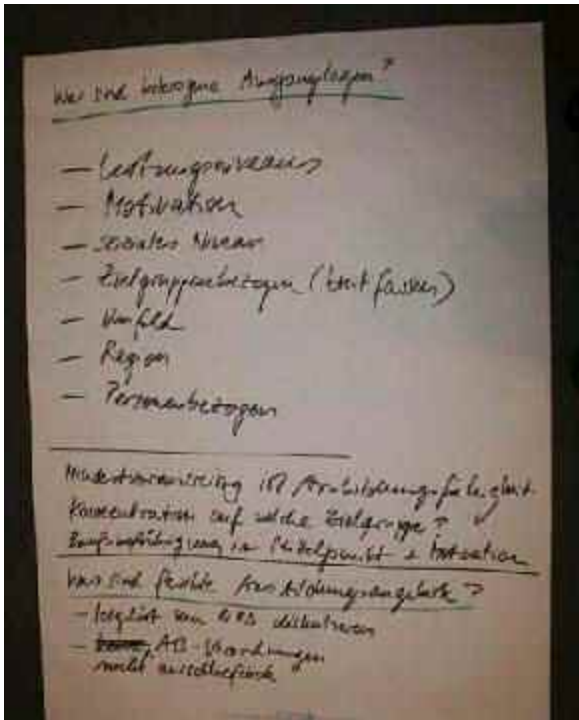 Was sind heterogene Ausgangslagen?
— Leistungsniveaus
— Motivation
— soziales Niveau
— Zielgruppenbezogen (breit fassen)
— Umfeld
— Region
— Personenbezogen
Mindestvoraussetzung ist Ausbildungsfähigkeit
Konzentration auf welche Zielgruppe?
im Mittelpunkt
Was sind flexible Ausbildungsangebote?
- von diskutieren
- AO-Verordnungen
nicht